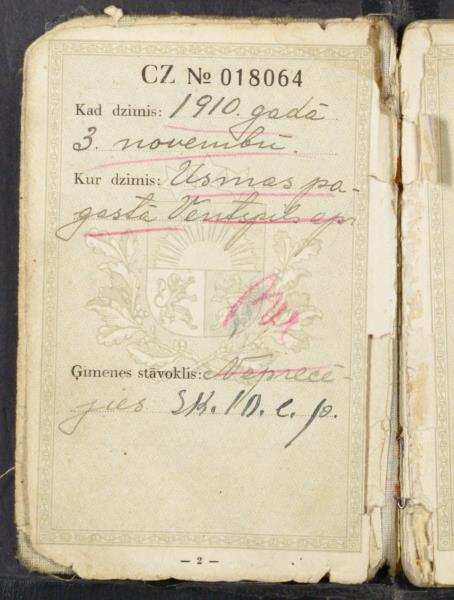 CZ № 018064
Kad dzimis: 1910. gadā
3. novembrī.
Kur dzimis: Usmas pa-
gastā Ventspils apr.
Ģimenes stāvoklis: Neprecē-
jies Sk. 10. l. p.
— 2 —